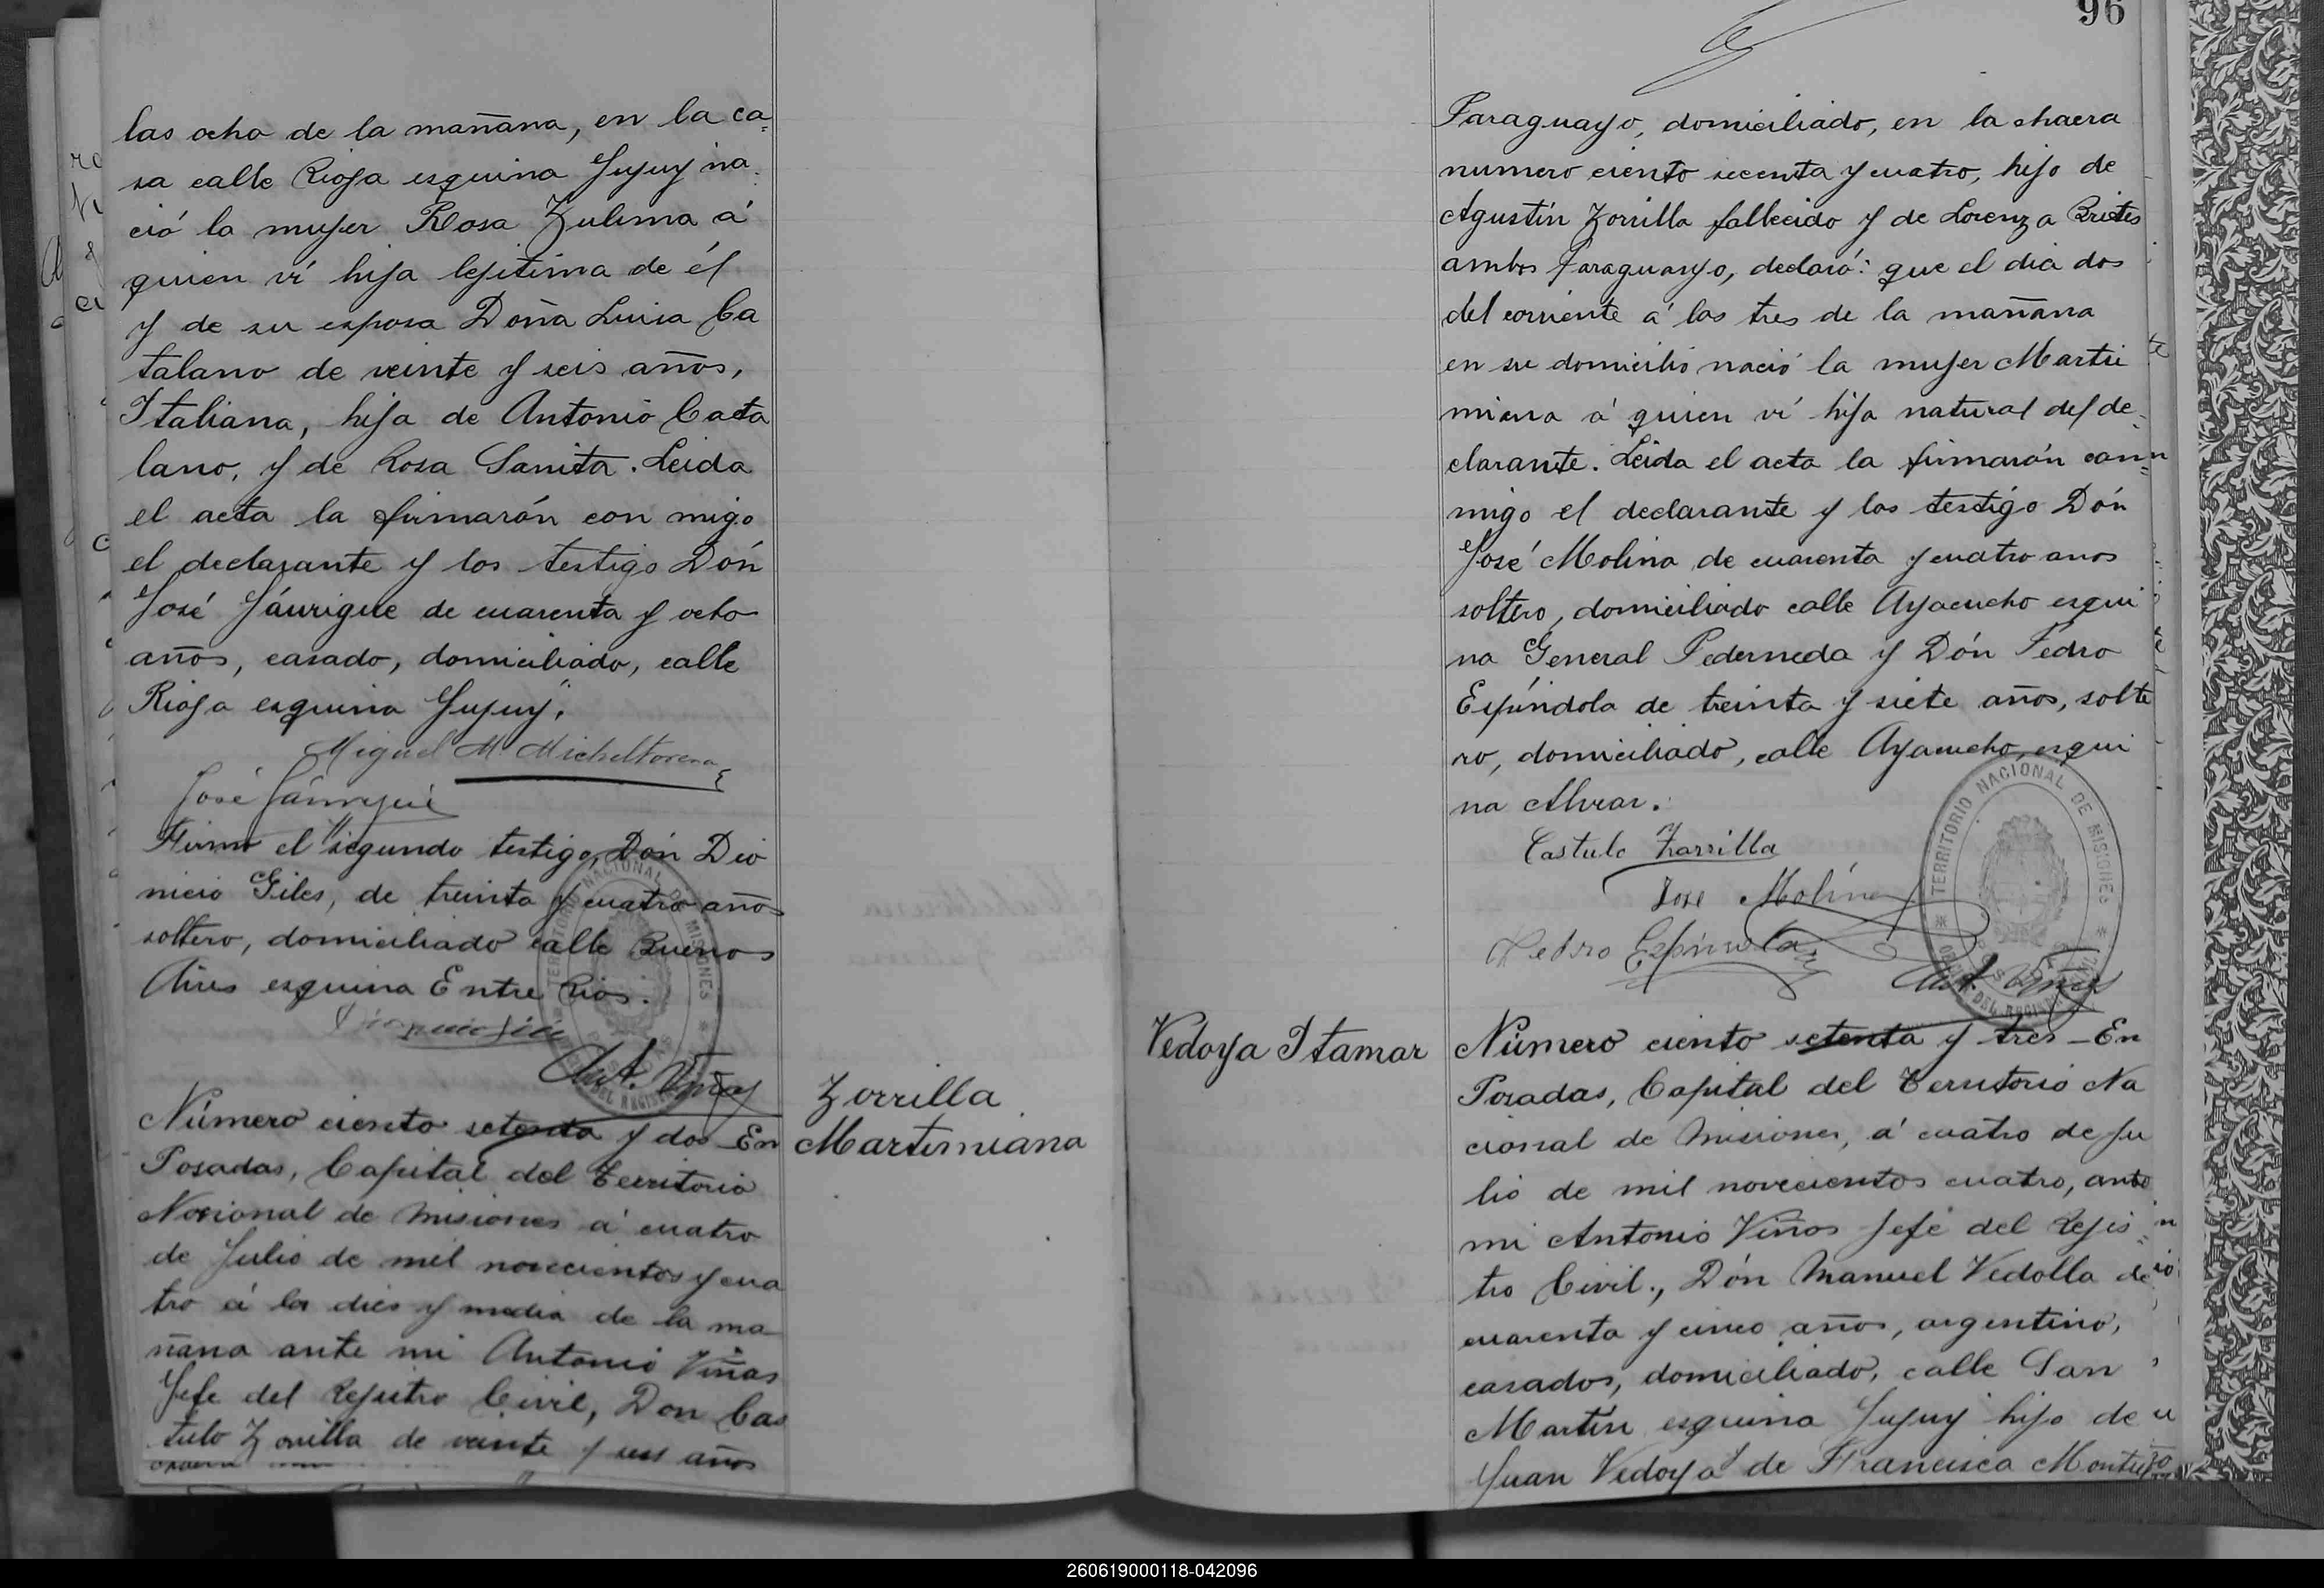 las ocho de la mañana, en la ca=
sa calle Rioja esquina Jujuy na-
ció la mujer Rosa Zulima á
quien ví hija lejitima de él
y de su esposa Doña Luisa Ca
talano de veinte y seis años,
Italiana, hija de Antonio Cata
lano, y de Rosa Sanita. Leida
el acta la firmarón con migo
el declarante y los testigo Dón
José Jáurigue de cuarenta y ocho
años, casado, domiciliado, calle
Rioja esquina Jujuy.
Miguel M Micheltorena
José Jáuregui
Firmo el segundo testigo, Dón Dio
nicio Giles, de treinta y cuatro años
soltero, domiciliado calle Buenos
Aires esquina Entre Rios.
Ant. Viñas
Zorrilla
Martimiana
Número ciento setenta y dos - En
Posadas, Capital del Territorio
Nacional de Misiones á cuatro
de Julio de mil novecientos y cua
tro á las dies y media de la ma
ñana ante mi Antonio Viñas
Jefe del Rejistro Civil, Don Cas
tulo Zorrilla de veinte y seis años
96
Paraguayo, domiciliado, en la chacra
numero ciento secenta y cuatro, hijo de
Agustín Zorrilla fallecido y de Lorenza Brites
ambos Paraguayo, declaró: que el dia dos
del corriente á las tres de la mañana
en su domicilio nació la mujer Marti
miana á quien ví hija natural del de-
clarante. Leida el acta la firmarón con=
migo el declarante y los testigo Dón
José Molina de cuarenta y cuatro anos
soltero, domiciliado calle Ayacucho esqui
na General Pederneda y Dón Pedro
Espíndola de treinta y siete años, solte
ro, domiciliado, calle Ayacucho esqui
na Alvear.
Castulo Zorrilla
Jose Molina
Pedro Espindola
Ant. Viñas
TERRITORIO NACIONAL DE MISIONES
Vedoya Itamar
Número ciento setenta y tres - En
Posadas, Capital del Territorio Na
cional de Misiones, á cuatro de Ju
lio de mil novecientos cuatro, ante
mi Antonio Viños Jefe del Rejis=
tro Civil., Dón Manuel Vedolla de
cuarenta y cinco años, argentino,
casados, domiciliado, calle San
Martin esquina Jujuy hijo de
Juan Vedoya de Francisca
260619000118-042096